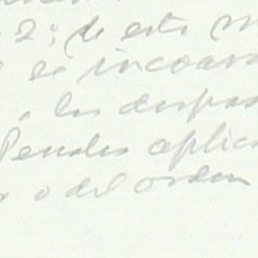 2; de este m
se incoara
a las dispos
Penales aplic
o del orden